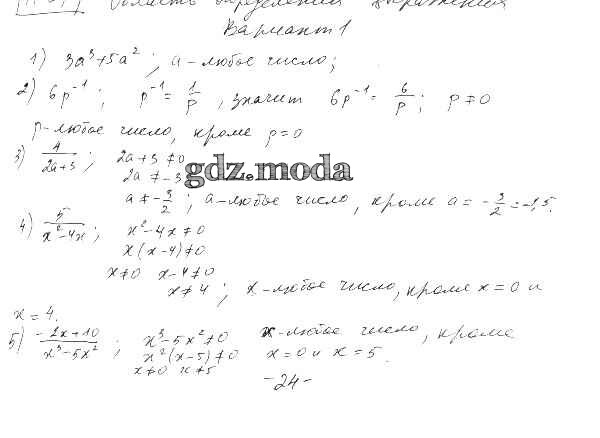 Область определения выражения
Вариант 1
1) 3a³+5a² ; a - любое число;
2) 6p⁻¹ ; p⁻¹ = 1/p , значит 6p⁻¹ = 6/p ; p ≠ 0
p - любое число, кроме p = 0
3) 4/(2a+3) ; 2a+3 ≠ 0
2a ≠ -3
gdz.moda
a ≠ -3/2 ; a - любое число, кроме a = -3/2 = -1,5.
4) 5/(x²-4x) ; x²-4x ≠ 0
x(x-4) ≠ 0
x ≠ 0 x-4 ≠ 0
x ≠ 4 ; x - любое число, кроме x = 0 и
x = 4.
5) (-2x+10)/(x³-5x²) ; x³-5x² ≠ 0 x - любое число, кроме
x²(x-5) ≠ 0 x = 0 и x = 5.
x ≠ 0 x ≠ 5
-24-